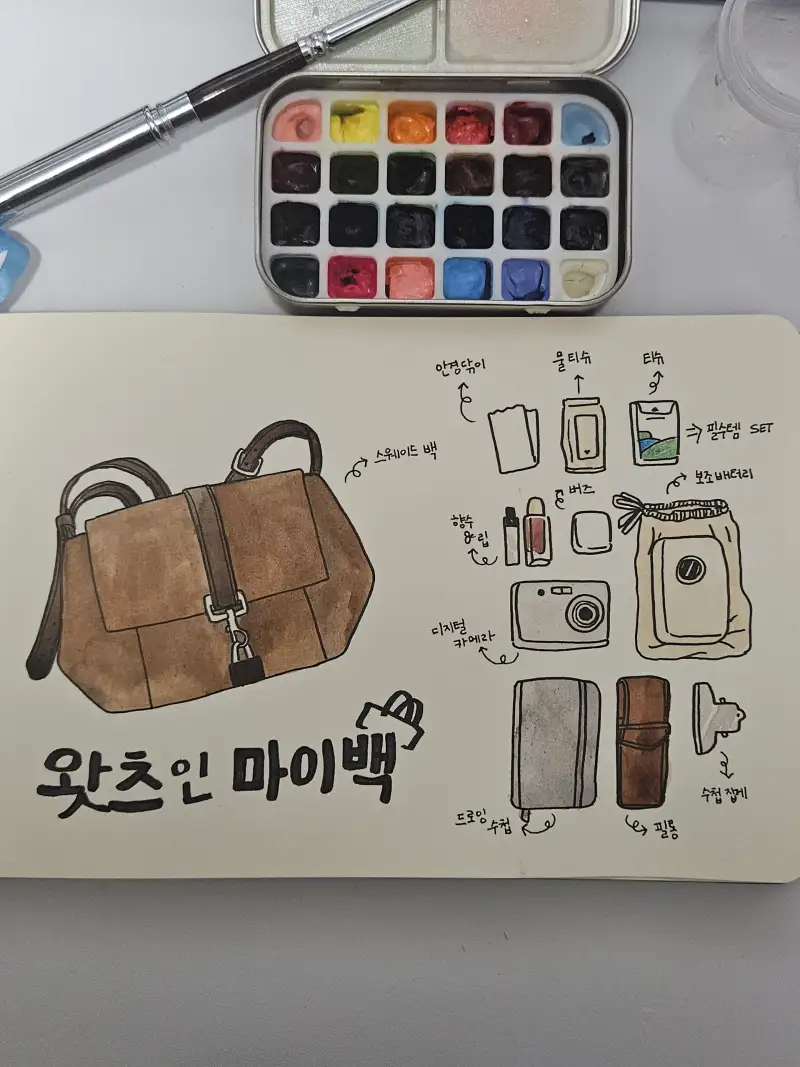 안경닦이
물티슈
티슈
필수템 SET
스웨이드 백
보조배터리
버즈
향수
&립
디지털
카메라
왓츠인 마이백
수첩 집게
드로잉
수첩
필통